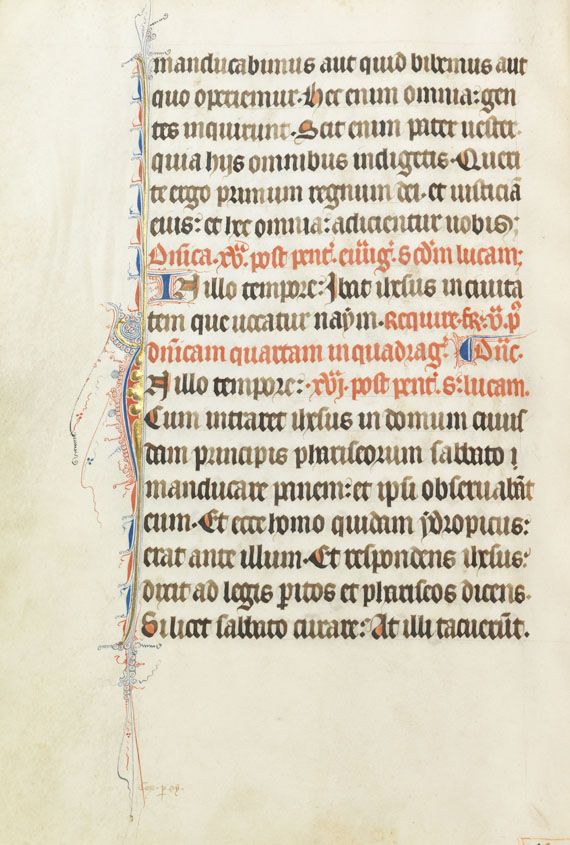 manducabimus aut quid bibemus aut
quo operiemur. Hec enim omnia: gen
tes inquirunt. Scit enim pater uester.
quia hys omnibus indigetis. Queri
te ergo primum regnum dei. et iusticiā
eius: et hec omnia: adicientur uobis:
Dn̄ica. xv. post pent̄. euāḡ. s̄ cd̄m lucam:
In illo tempore: Ibat ih̄esus in ciuita
tem que uocatur naym. Require. fr̄. v̄. p̄
dn̄icam quartam in quadraḡ. Dn̄c.
In illo tempore: xvj. post pent̄. s̄. lucam.
Cum intraret ih̄esus in domum cuius
dam principis phariseorum sabbato
manducare panem: et ipsi obseruabāt
eum. Et ecce homo quidam ydropicus:
erat ante illum. Et respondens ih̄esus:
dixit ad legis p̄itos et phariseos dicens.
Si licet sabbato curare: At illi tacuerūt.